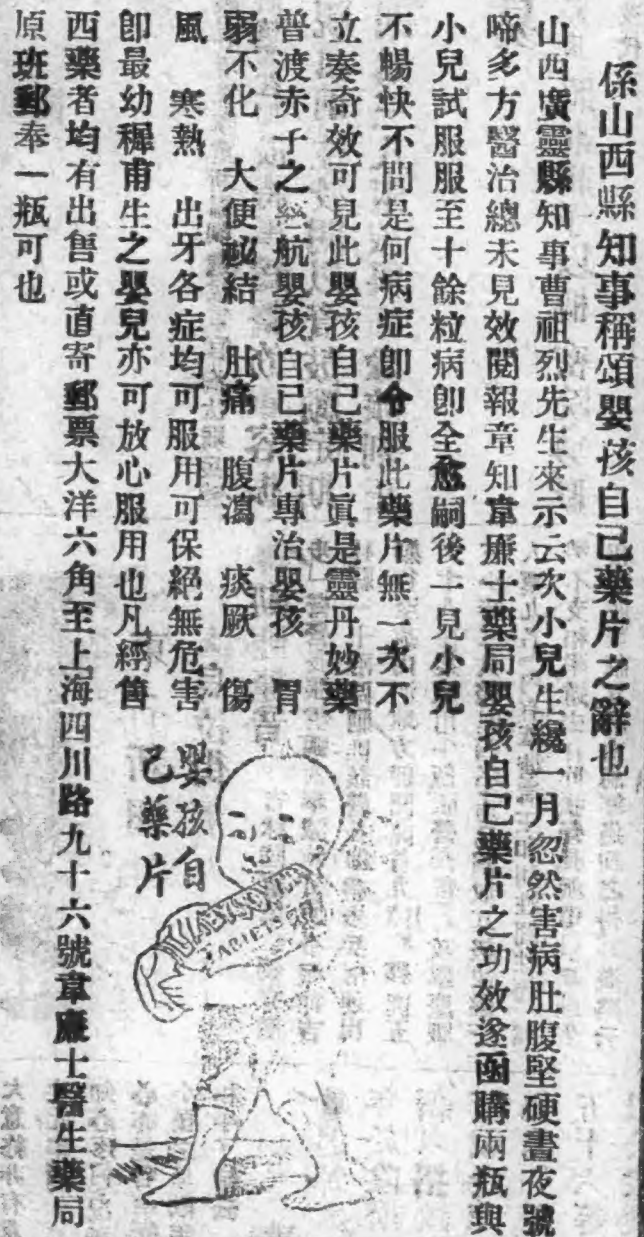 係山西縣知事稱頌嬰孩自己藥片之辭也
山西廣靈縣知事曹祖烈先生來示云次小兒生纔一月忽然害病肚腹堅硬晝夜號
啼多方醫治總未見效閱報章知韋廉士藥局嬰孩自己藥片之功效遂函購兩瓶與
小兒試服服至十餘粒病卽全愈嗣後一見小兒
不暢快不問是何病症卽令服此藥片無一次不
立奏奇效可見此嬰孩自己藥片眞是靈丹妙藥
普渡赤子之慈航嬰孩自己藥片專治嬰孩 胃
弱不化 大便祕結 肚痛 腹瀉 痰厥 傷
風 寒熱 出牙各症均可服用可保絕無危害
卽最幼穉甫生之嬰兒亦可放心服用也凡經售
西藥者均有出售或直寄郵票大洋六角至上海四川路九十六號韋廉士醫生藥局
原班郵奉一瓶可也
嬰孩自
己藥片
BABY'S OWN
TABLETS